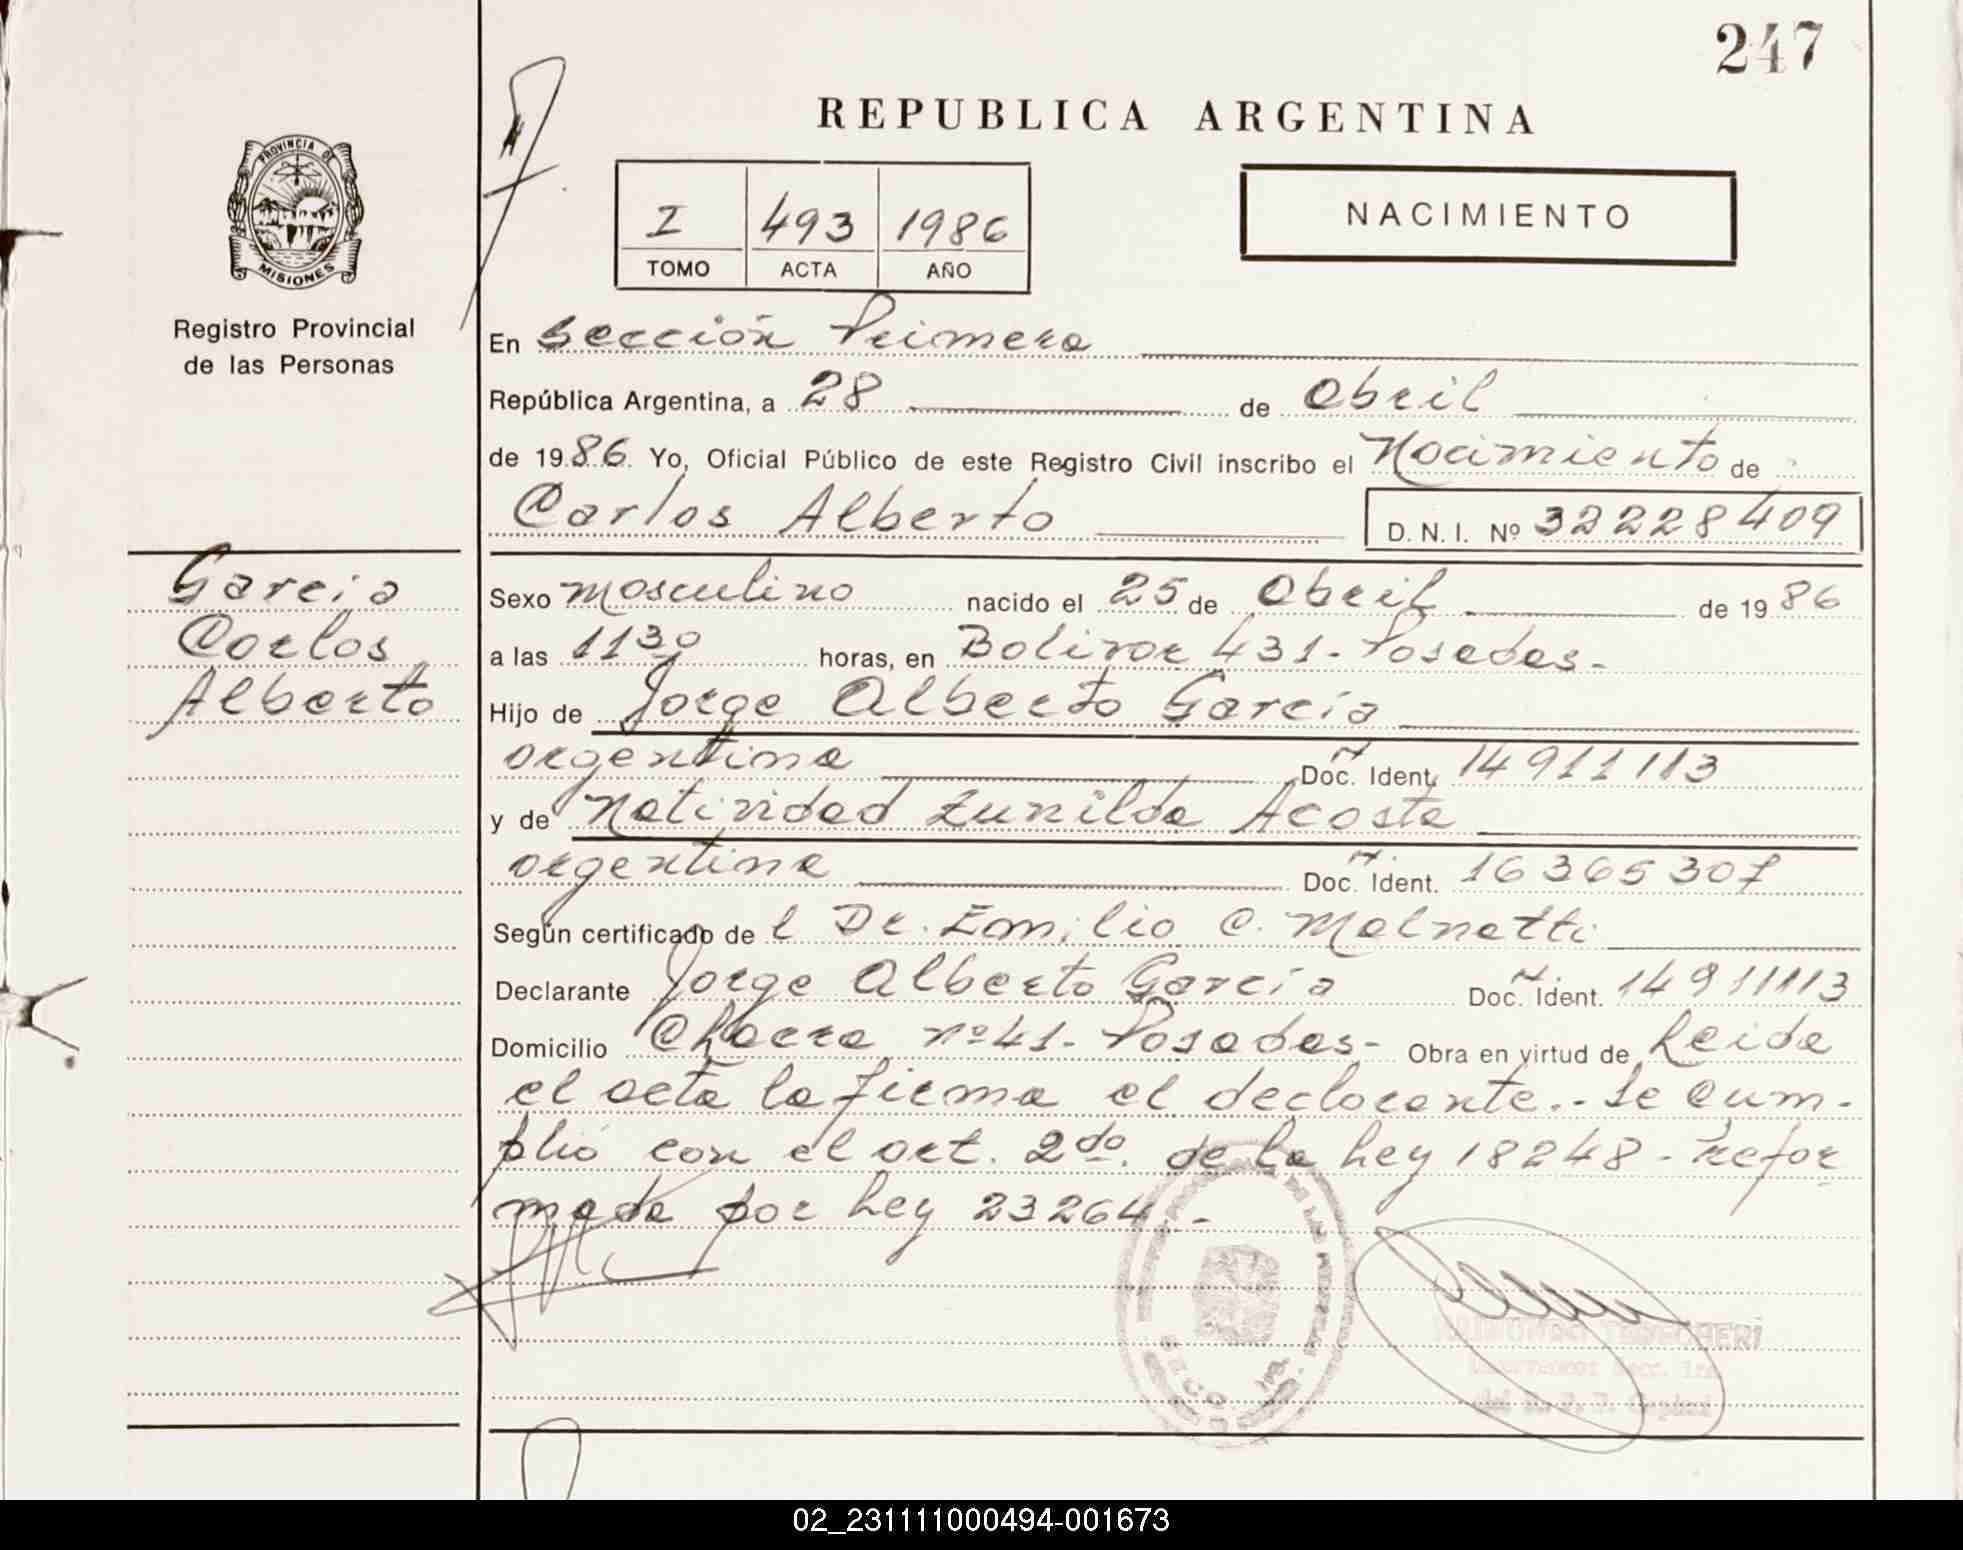 247
REPUBLICA ARGENTINA
PROVINCIA DE
MISIONES
Registro Provincial
de las Personas
I 493 1986
TOMO ACTA AÑO
NACIMIENTO
En Sección Primera
República Argentina, a 28 de Abril
de 1986. Yo, Oficial Público de este Registro Civil inscribo el Nacimiento de
Carlos Alberto
D. N. I. Nº 32228409
Garcia
Carlos
Alberto
Sexo masculino nacido el 25 de Abril de 1986
a las 1130 horas, en Bolivar 431 - Posadas.-
Hijo de Jorge Alberto García
argentina Doc. Ident. 14911113
y de Natividad Zunilda Acosta
argentina Doc. Ident. 16365307
Según certificado de l Dr. Emilio C. Malnatti
Declarante Jorge Alberto García Doc. Ident. 14911113
Domicilio Chacra nº 41 - Posadas - Obra en virtud de Leida
el acta la firma el declarante.- Se cum-
plió con el art. 2do. de la Ley 18248 - refor
mada por Ley 23264 -
02_231111000494-001673